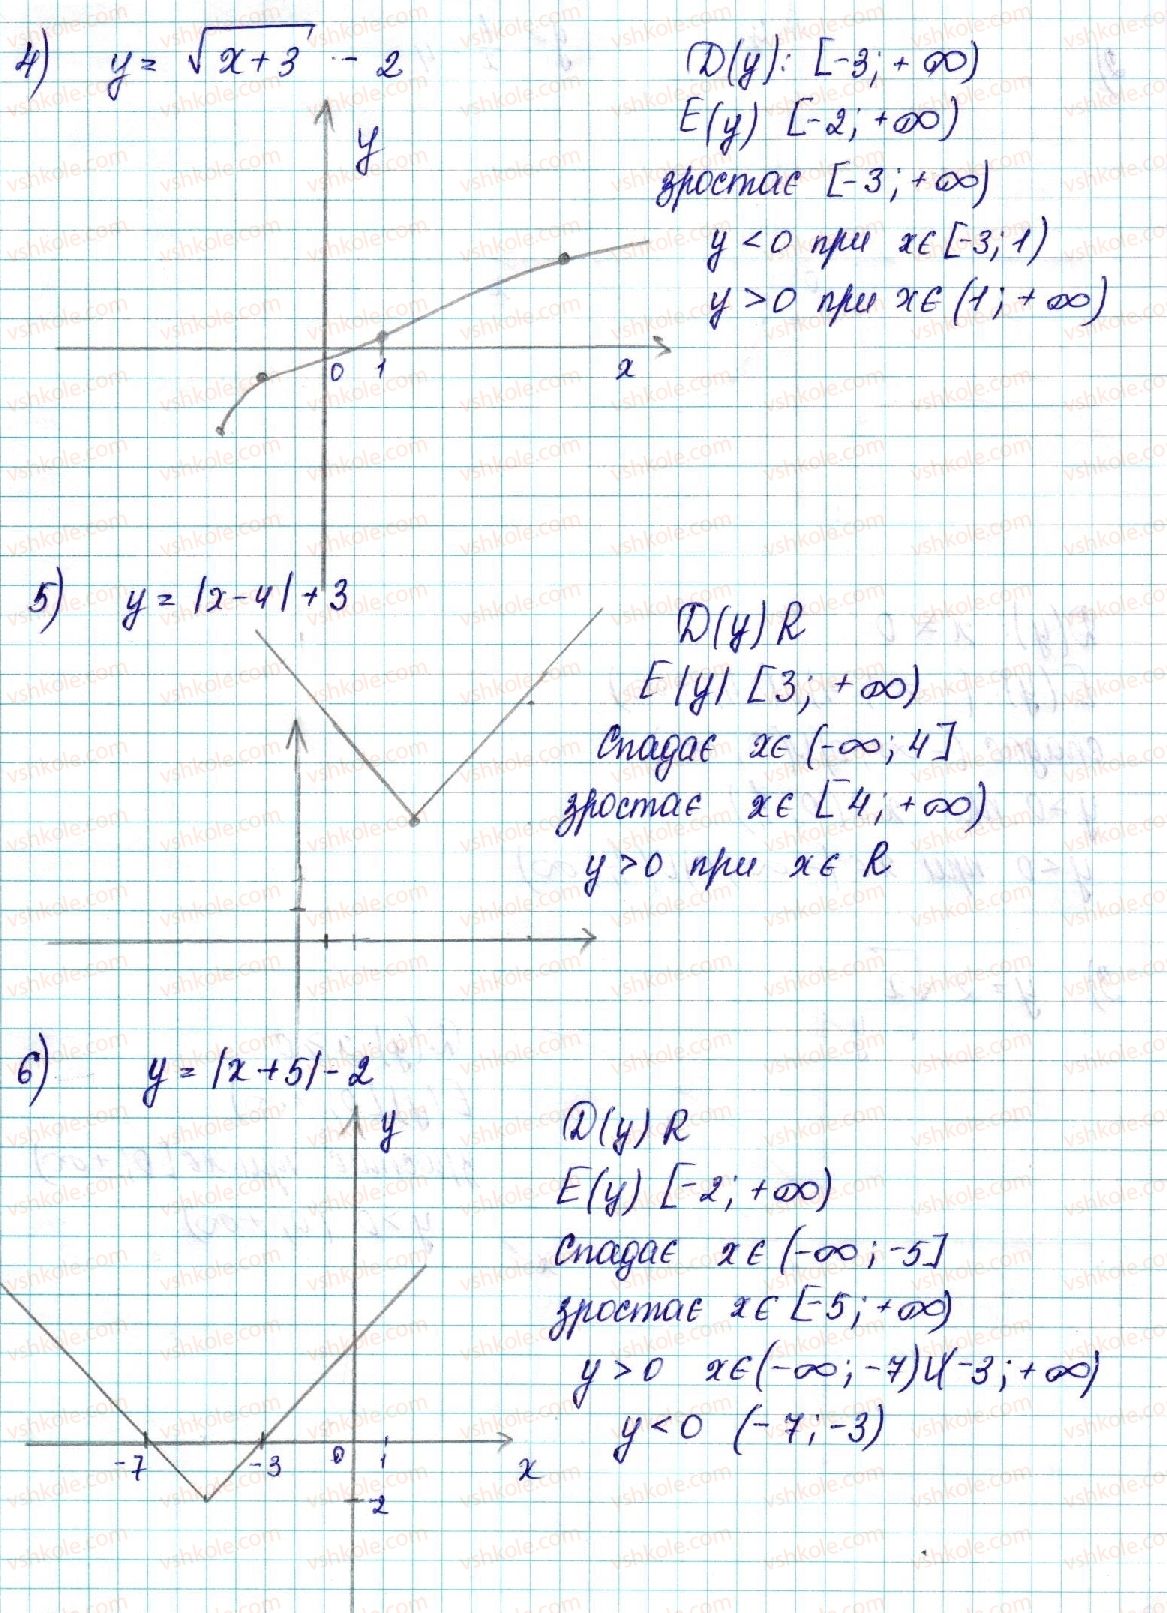 4) y = √x+3 - 2
D(y): [-3; +∞)
E(y) [-2; +∞)
зростає [-3; +∞)
y < 0 при x ∈ [-3; 1)
y > 0 при x ∈ (1; +∞)
y
0 1 x
5) y = |x-4| + 3
D(y) R
E(y) [3; +∞)
Спадає x ∈ (-∞; 4]
зростає x ∈ [4; +∞)
y > 0 при x ∈ R
6) y = |x+5| - 2
y
D(y) R
E(y) [-2; +∞)
Спадає x ∈ (-∞; -5]
зростає x ∈ [-5; +∞)
y > 0 x ∈ (-∞; -7) ∪ (-3; +∞)
y < 0 (-7; -3)
-7 -3 0 1 x
-2
vshkole.com